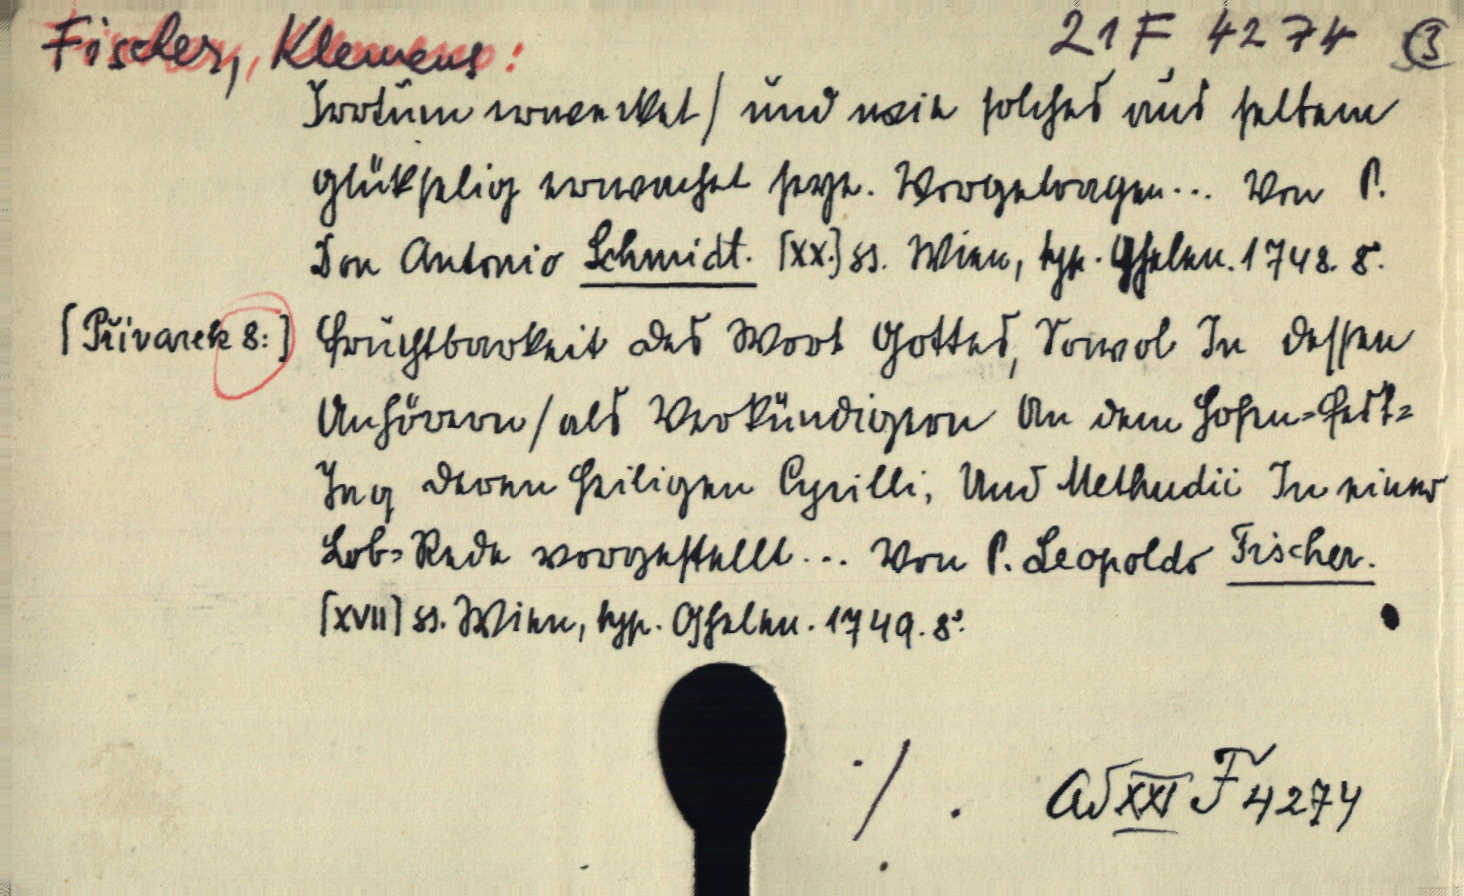 Fischer, Klemens: 21 F 4274 3
Irrtum erwecket / und wie solches aus seltem
glükselig erwachet seye. Vorgetragen... Von P.
Don Antonio Schmidt. [XX.] ss. Wien, typ. Ghelen. 1748. 8°.
[Přívazek 8:] Fruchtbarkeit des Wort Gottes, Sowol In dessen
Anhörern / als Verkündigern An dem Hohen=Fest=
Tag deren heiligen Cyrilli, Und Methudii In einer
Lob=Rede vorgestellt... Von P. Leopoldo Fischer.
[XVII] ss. Wien, typ. Ghelen. 1749. 8°.
./.
Ad XXI F 4274